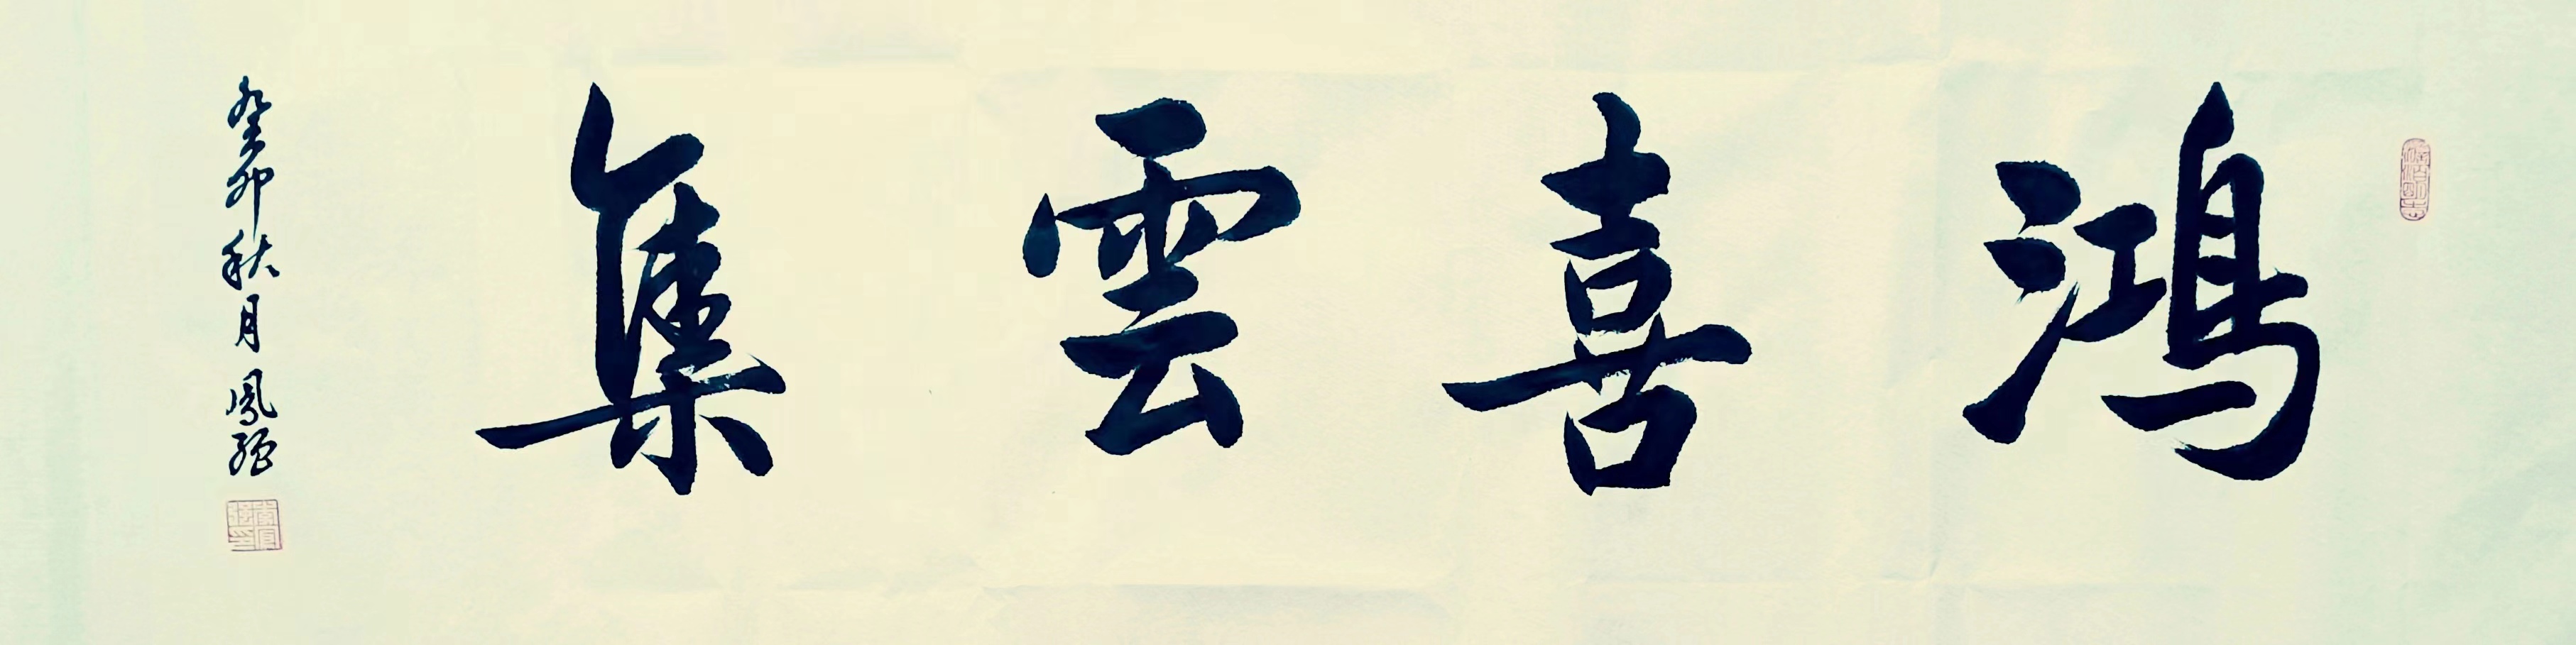 鴻喜雲集
癸卯秋月鳳強